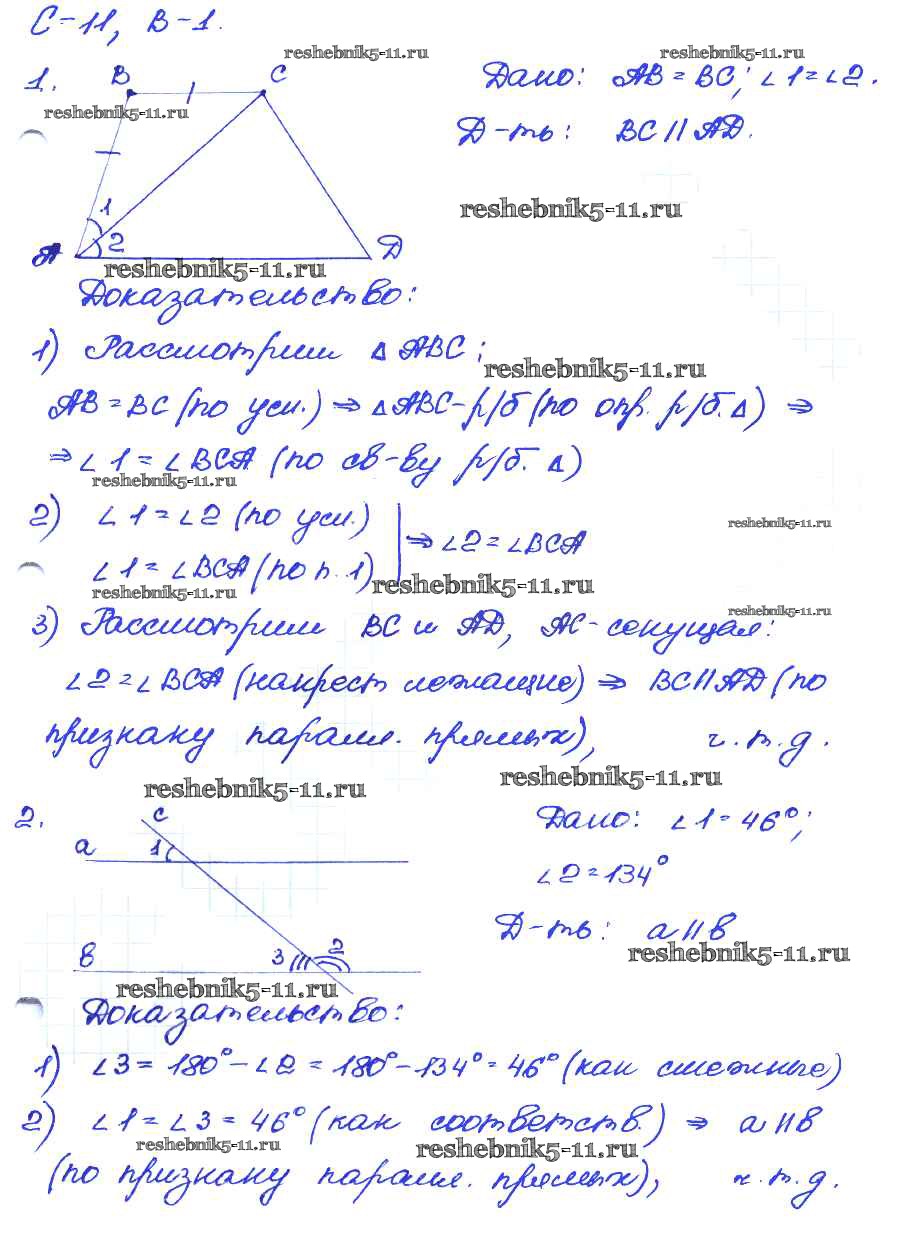 С-11, В-1.
reshebnik5-11.ru reshebnik5-11.ru
1. B C Дано: AB = BC; ∠1 = ∠2.
reshebnik5-11.ru
Д-ть: BC || AD.
1
reshebnik5-11.ru
2
A D
reshebnik5-11.ru
Доказательство:
1) Рассмотрим △ABC;
reshebnik5-11.ru
AB = BC (по усл.) ⇒ △ABC - р/б (по опр. р/б. △) ⇒
⇒ ∠1 = ∠BCA (по св-ву р/б. △)
reshebnik5-11.ru
2) ∠1 = ∠2 (по усл.)
reshebnik5-11.ru
⇒ ∠2 = ∠BCA
∠1 = ∠BCA (по п. 1)
reshebnik5-11.ru reshebnik5-11.ru
reshebnik5-11.ru
3) Рассмотрим BC и AD, AC - секущая:
∠2 = ∠BCA (накрест лежащие) ⇒ BC || AD (по
признаку паралл. прямых), ч.т.д.
reshebnik5-11.ru reshebnik5-11.ru
2. c Дано: ∠1 = 46°;
a 1
∠2 = 134°
Д-ть: a || b
b 3 2
reshebnik5-11.ru
reshebnik5-11.ru
Доказательство:
1) ∠3 = 180° - ∠2 = 180° - 134° = 46° (как смежные)
2) ∠1 = ∠3 = 46° (как соответств.) ⇒ a || b
reshebnik5-11.ru reshebnik5-11.ru
(по признаку паралл. прямых), ч.т.д.